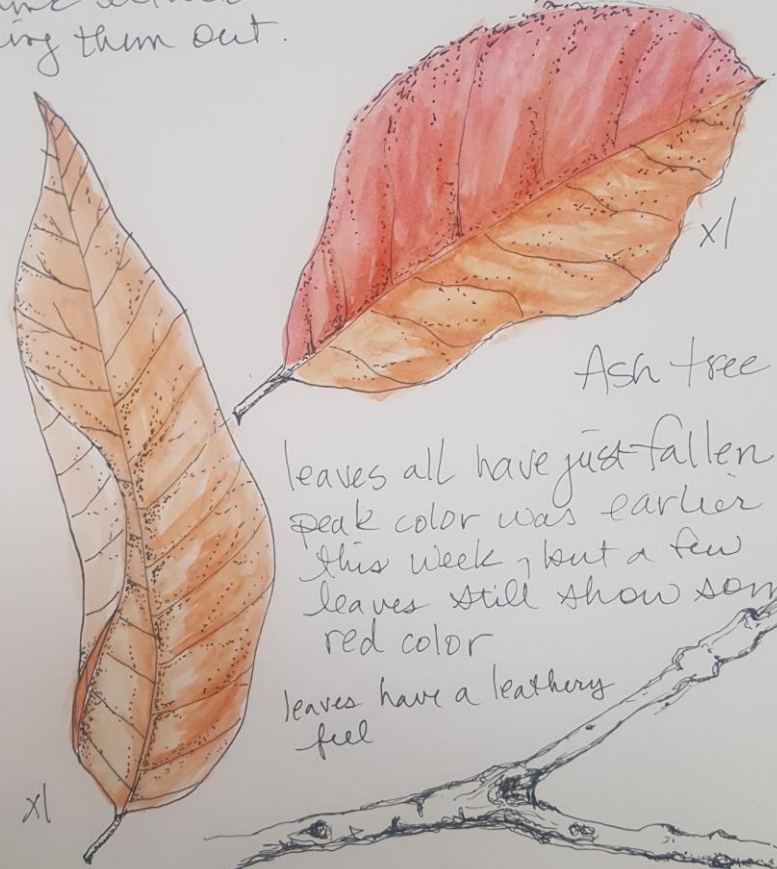 ing them out.
x1
Ash tree
leaves all have just fallen
peak color was earlier
this week, but a few
leaves still show som
red color
leaves have a leathery
feel
x1